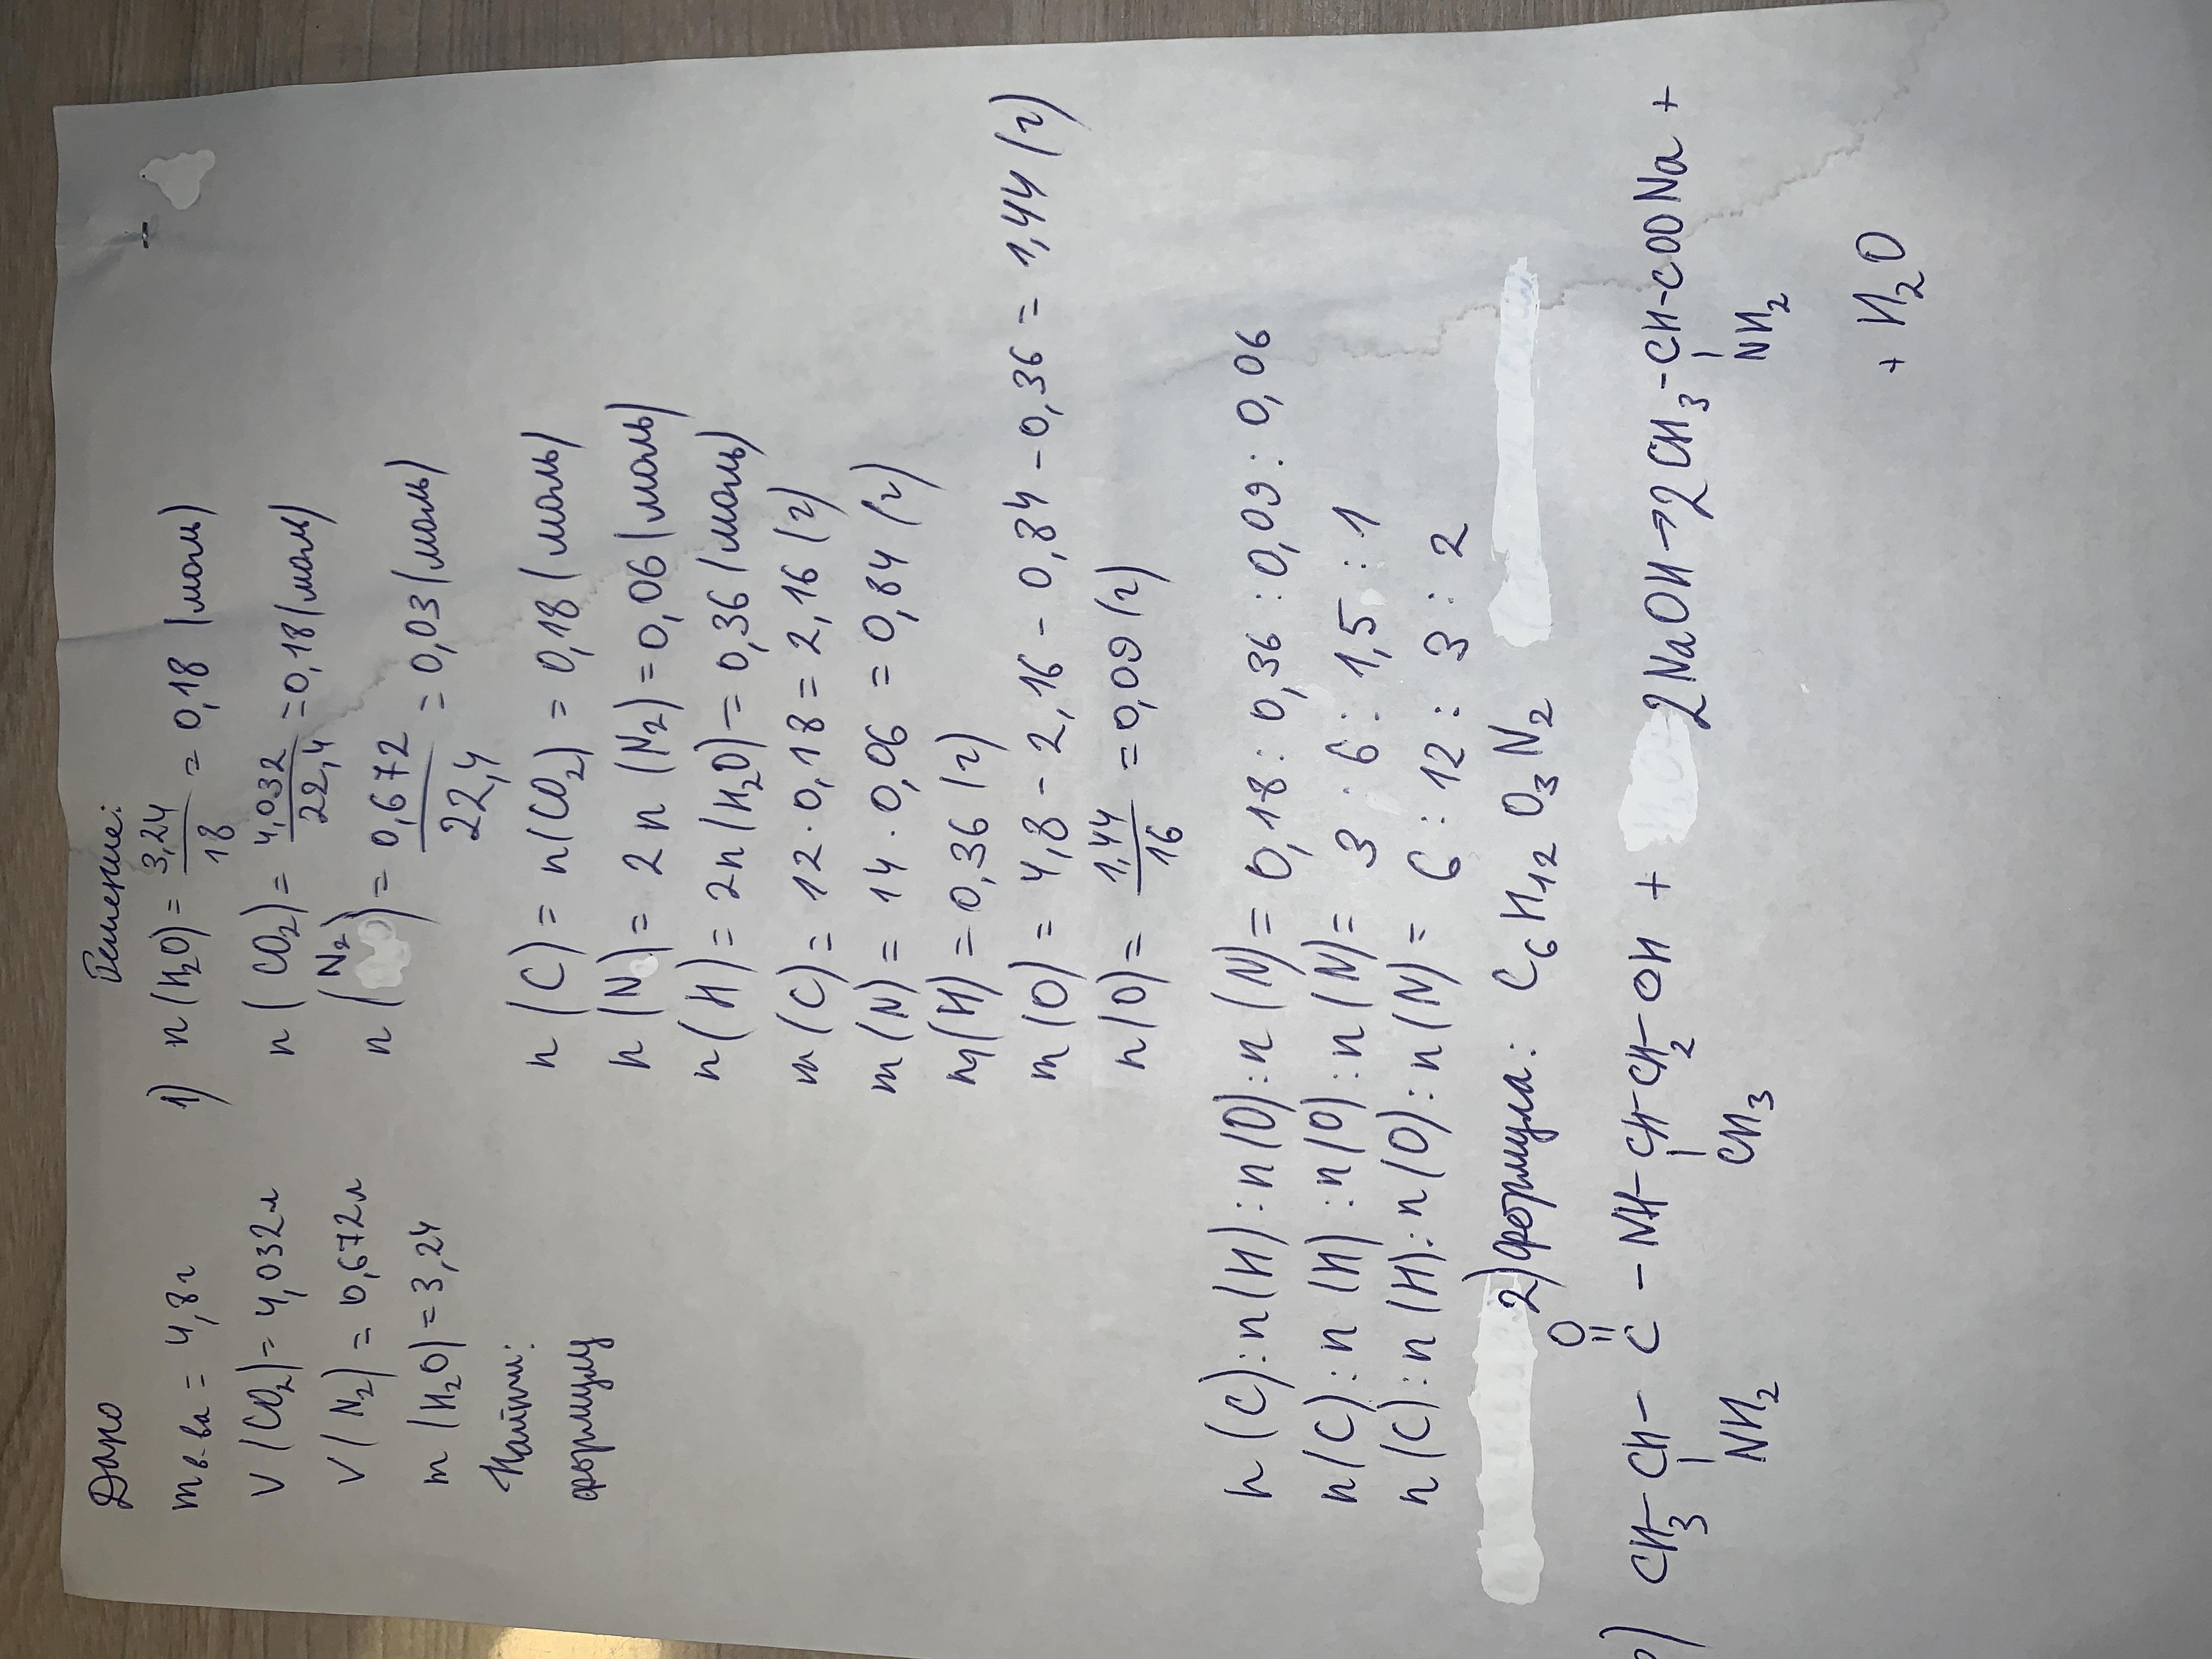 Дано
m в-ва = 4,8 г
V (CO₂) = 4,032 л
V (N₂) = 0,672 л
m (H₂O) = 3,24
Найти:
формулу
Решение:
1) n (H₂O) = 3,24/18 = 0,18 (моль)
n (CO₂) = 4,032/22,4 = 0,18 (моль)
n (N₂) = 0,672/22,4 = 0,03 (моль)
n (C) = n (CO₂) = 0,18 (моль)
n (N) = 2n (N₂) = 0,06 (моль)
n (H) = 2n (H₂O) = 0,36 (моль)
m (C) = 12 · 0,18 = 2,16 (г)
m (N) = 14 · 0,06 = 0,84 (г)
m (H) = 0,36 (г)
m (O) = 4,8 - 2,16 - 0,84 - 0,36 = 1,44 (г)
n (O) = 1,44/16 = 0,09 (г)
n (C) : n (H) : n (O) : n (N) = 0,18 : 0,36 : 0,09 : 0,06
n (C) : n (H) : n (O) : n (N) = 3 : 6 : 1,5 : 1
n (C) : n (H) : n (O) : n (N) = 6 : 12 : 3 : 2
2) Формула: C₆H₁₂O₃N₂
O
CH₃ - CH - C - NH - CH - CH₂ - OH + 2NaOH → 2CH₃ - CH - COONa +
NH₂ CH₃ NH₂
+ H₂O